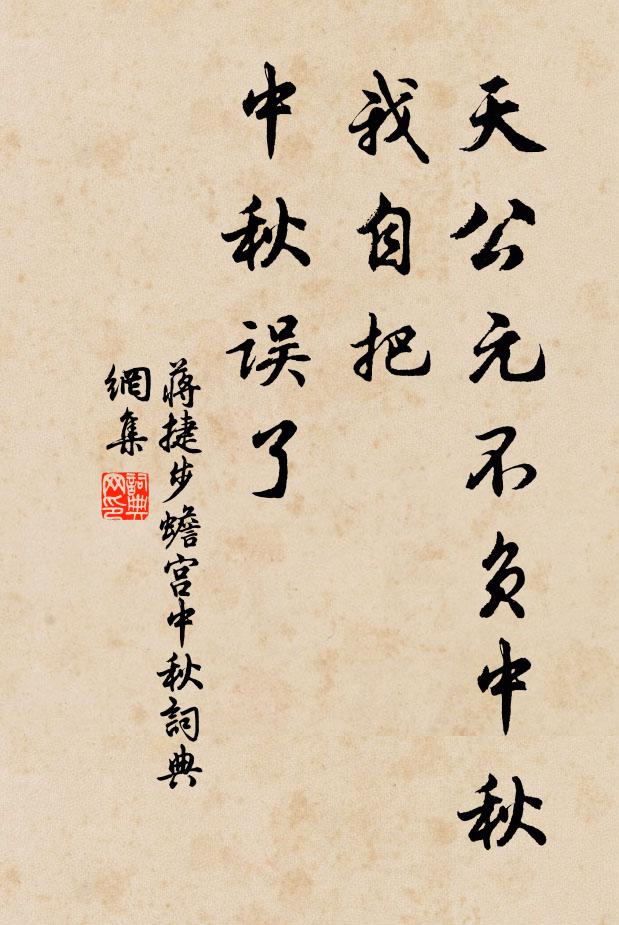 天公元不负中秋
我自把
中秋误了
蒋捷步蟾宫中秋詞典
網集
詞典
网印